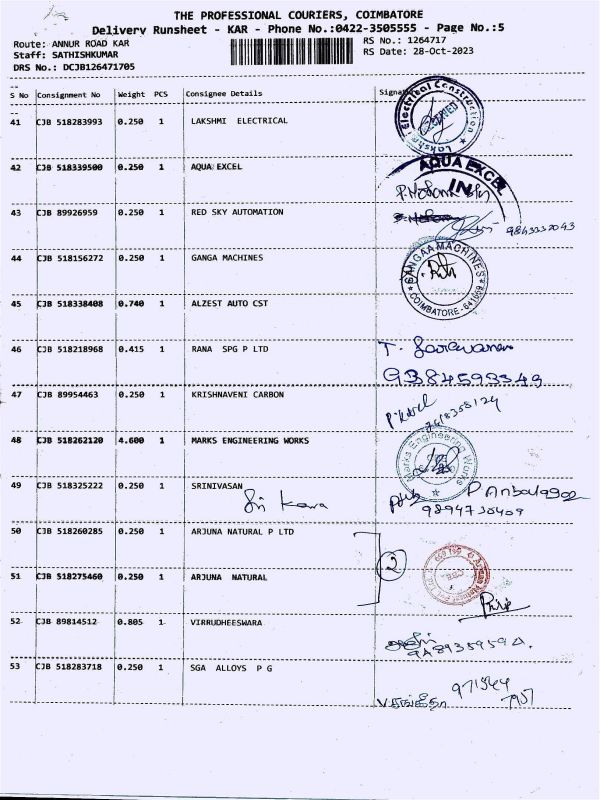 THE PROFESSIONAL COURIERS, COIMBATORE
Delivery Runsheet - KAR - Phone No.:0422-3505555 - Page No.:5
Route: ANNUR ROAD KAR
RS No.: 1264717
Staff: SATHISHKUMAR
RS Date: 28-Oct-2023
DRS No.: DCJB126471705
S No Consignment No Weight PCS Consignee Details
41 CJB 518283993 0.250 1 LAKSHMI ELECTRICAL
Electrical Construction
42 CJB 518339500 0.250 1 AQUA EXCEL
AQUA EXCEL
IN
43 CJB 89926959 0.250 1 RED SKY AUTOMATION
44 CJB 518156272 0.250 1 GANGA MACHINES
GANGAA MACHINES
COIMBATORE
45 CJB 518338408 0.740 1 ALZEST AUTO CST
46 CJB 518218968 0.415 1 RANA SPG P LTD
9384593349
47 CJB 89954463 0.250 1 KRISHNAVENI CARBON
48 CJB 518262120 4.600 1 MARKS ENGINEERING WORKS
Marks Engineering Works
49 CJB 518325222 0.250 1 SRINIVASAN
9894730409
50 CJB 518260285 0.250 1 ARJUNA NATURAL P LTD
2
51 CJB 518275460 0.250 1 ARJUNA NATURAL
52 CJB 89814512 0.805 1 VIRRUDHEESWARA
53 CJB 518283718 0.250 1 SGA ALLOYS P G